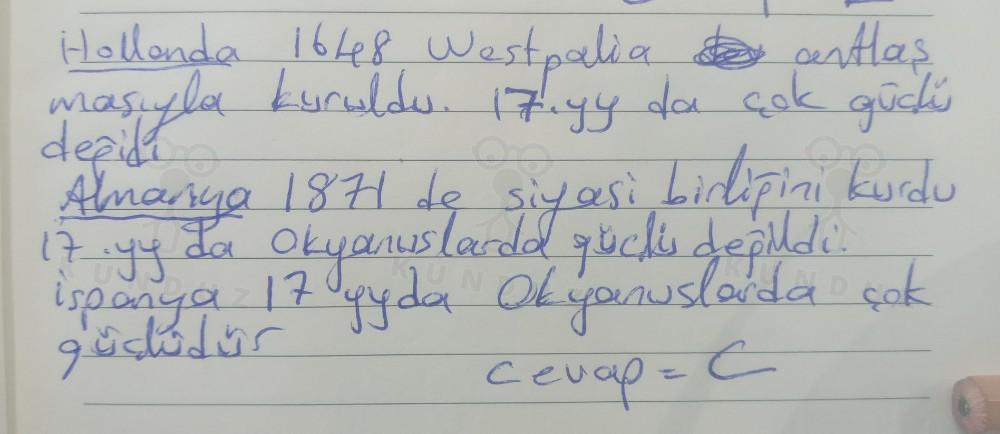 Hollanda 1648 Westpalia antlaş
masıyla kuruldu. 17.yy da çok güçlü
değidi
Almanya 1871 de siyasi birliğini kurdu
17.yy da Okyanuslarda güçlü değildi.
İspanya 17 yyda Okyanuslarda çok
güçlüdür
cevap = C
KUNDUZ
KUNDUZ
KUNDU